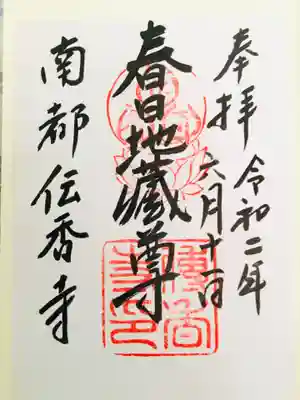 奉拝
令和二年
六月十一日
春日地蔵尊
南都伝香寺